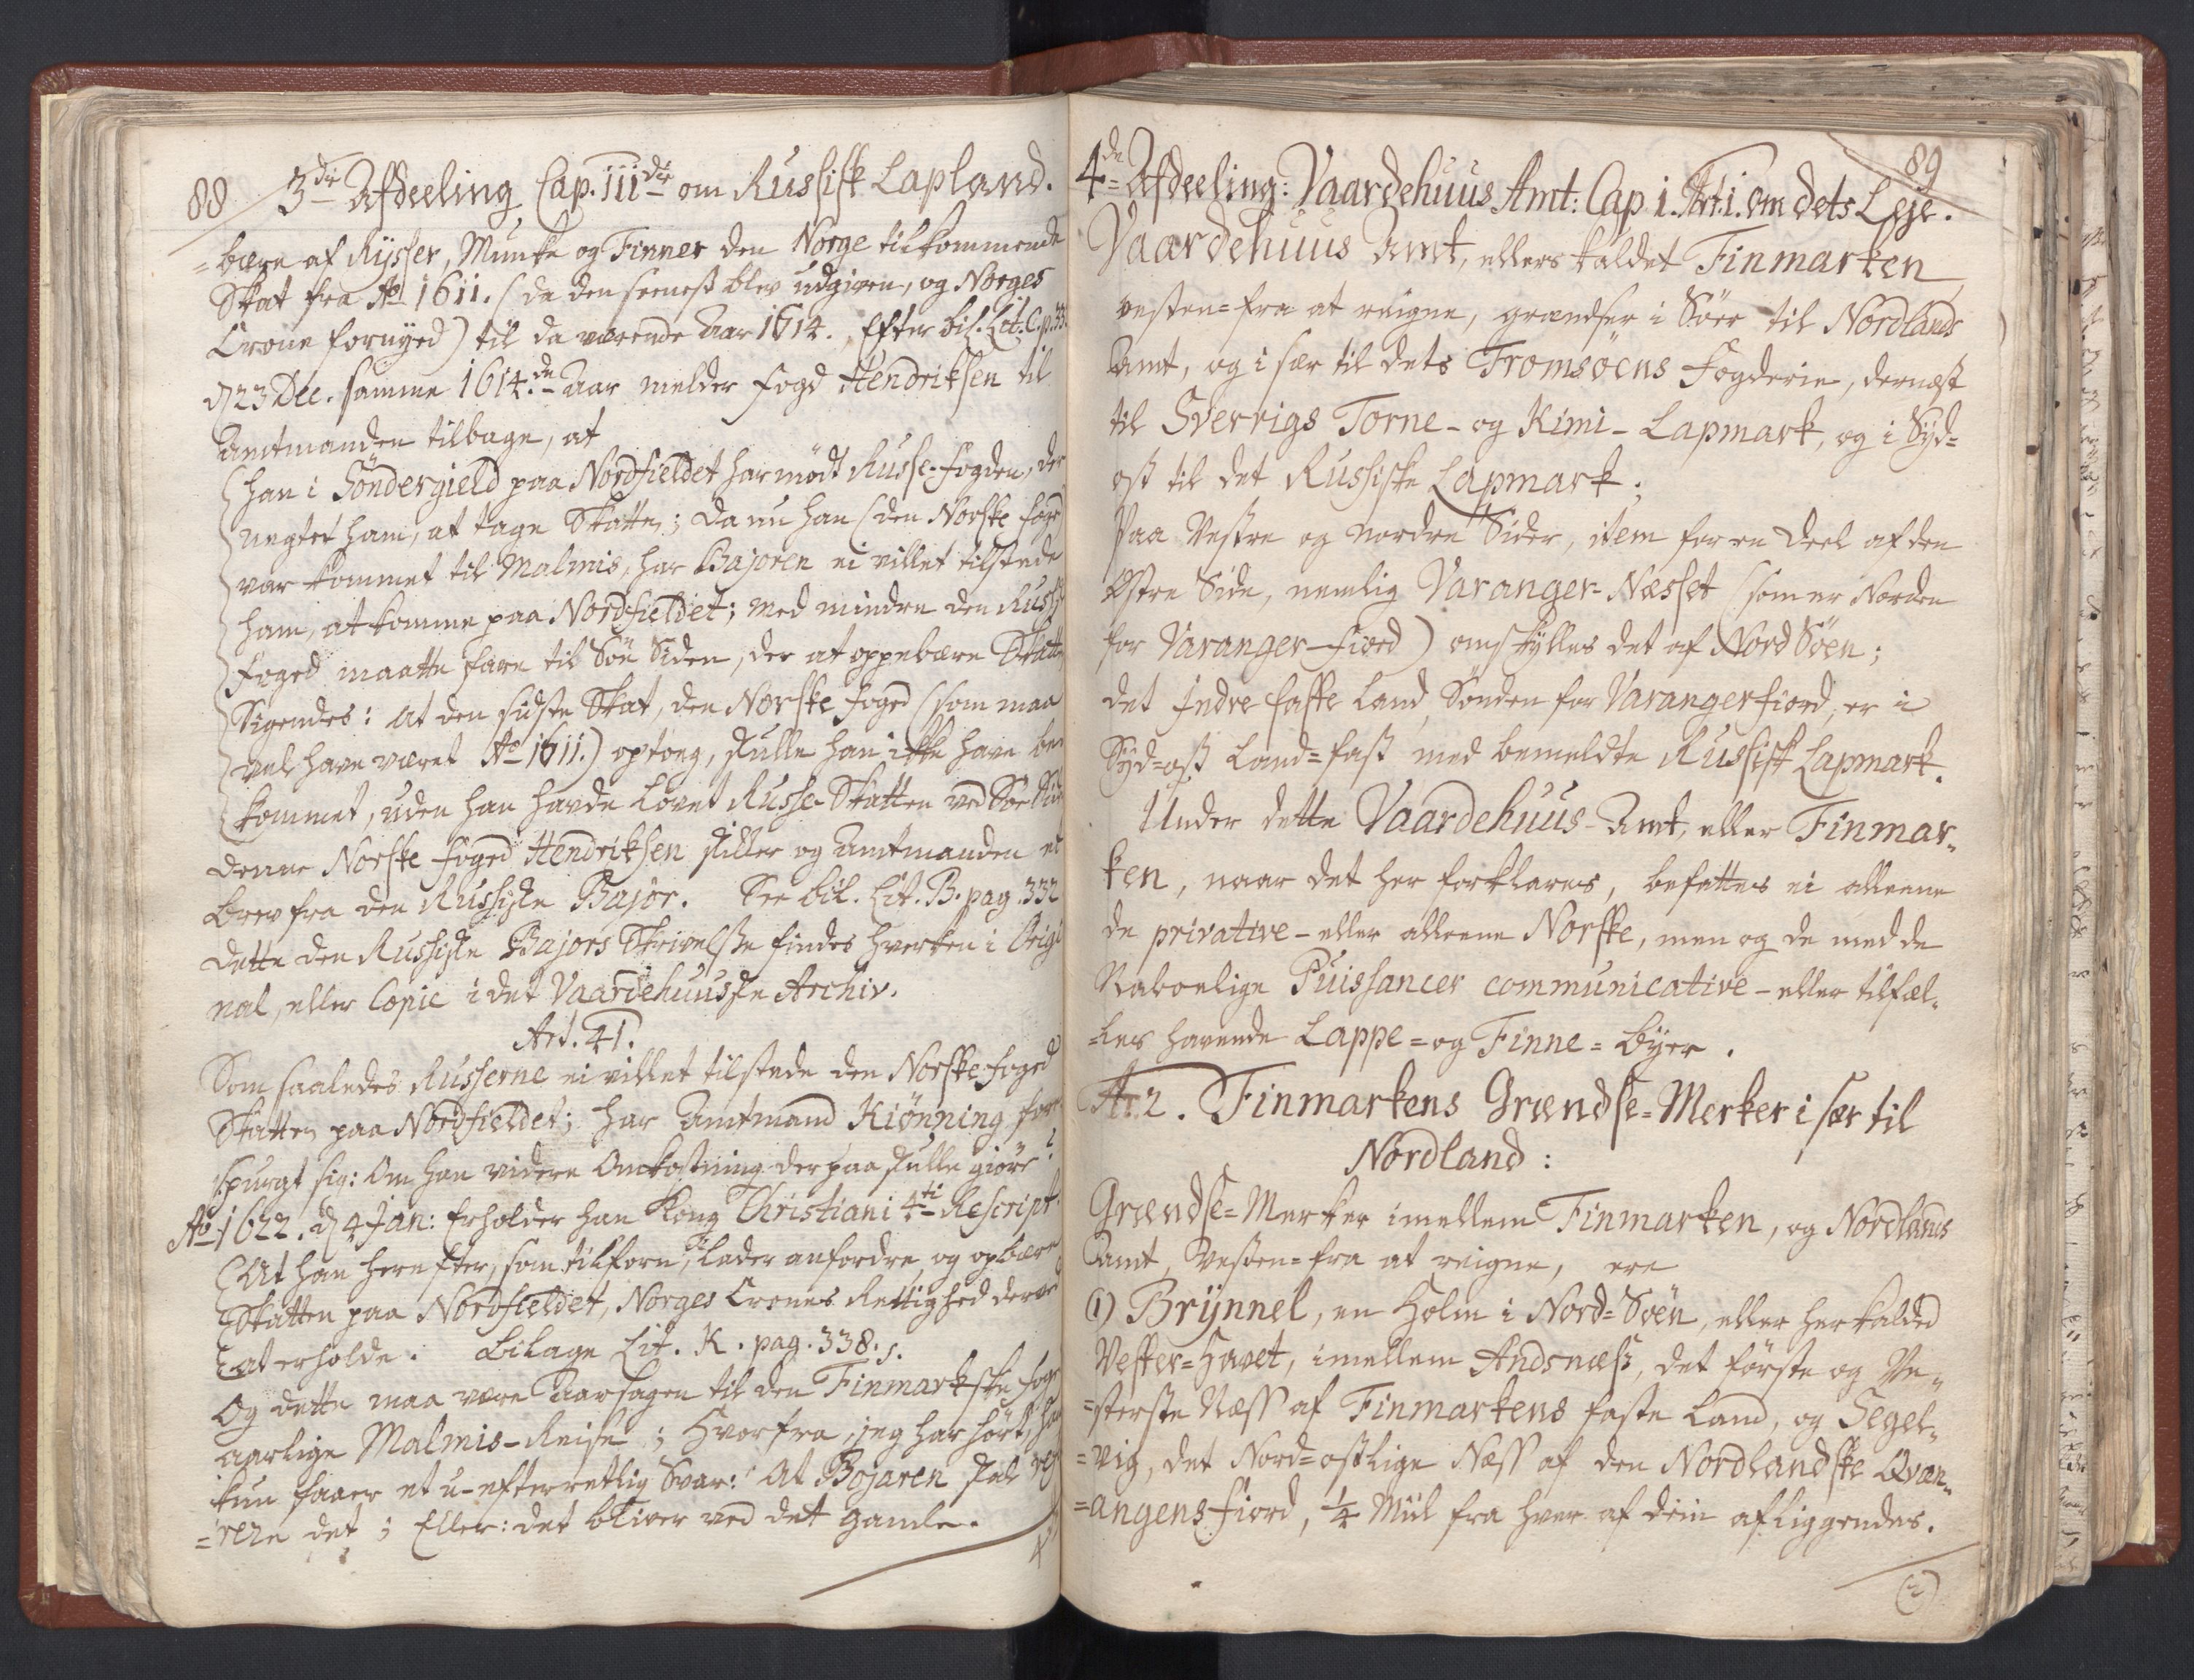 88 3die Afdeeling Cap. IIIdie om Russisk Lapland.
=bære af Rysser, Munke og Finner den Norge tilkommende
Skat fra Ao 1611. (da den seenest blev udgiven, og Norges
Crone fornyed) til da værende Aar 1614. Efter bil. Lit. C. p. 33
d 23 Dec. samme 1614.de Aar melder Fogd Hendriksen til
Amtmanden tilbage, at
han i Söndergield paa Nordfieldet har mödt Russe-Fogden, der
negtet ham, at tage Skatten; Da nu han (den Norske Fogd
var kommet til Malmis, har Bajoren ei villet tilstede
ham, at komme paa Nordfieldet; med mindre den Russis
Foged maatte fare til Söe Siden, der at oppebære Skatten
Sigendes: At den sidste Skat, den Norske Foged (som maa
vel have været Ao 1611.) optoeg, skulle han ikke have be
kommet, uden han havde lovet Russe-Skatten ved Söe Sid
Denne Norske Foged Hendriksen stiller og Amtmanden et
brev fra den Russiske Bajor. See bil. Lit. B. pag. 332
Dette den Russiske Bajors Skrivelse findes hverken i Origi
nal, eller Copie i det Vaardehuuske Archiv.
Art. 41.
Som saaledes Russerne ei villet tilstede den Norske Foged
Skatten paa Nordfieldet; har Amtmand Kiönning fore
spurgt sig: Om han videre Omkostning derpaa skulle giöre?
Ao 1622. d 4 Jan: Erholder han Kong Christiani 4ti Rescript.
At han herefter, som tilforn, lader anfordre og opbære
Skatten paa Nordfieldet, Norges Crones Rettighed derved
at erholde. Bilage Lit. K. pag. 338. s.
Og dette maa være Aarsagen til den Finmarkske Foge
aarlige Malmis-Reise; Hvorfra, jeg har hört, han
kun faaer et u-efterretlig Svar: At Bojaren skal res
=vere det; Eller: det bliver ved det gamle.
4de Afdeeling: Vaardehuus Amt: Cap. i. Art. i. om dets Leje. 89
Vaardehuus Amt, ellers kaldet Finmarken
vesten=fra at reigne, grændser i Söer til Nordlands
Amt, og i sær til dets Tromsöens Fogderie, dernæst
til Sverrigs Torne- og Kimi- Lapmark, og i Syd=
ost til det Russiske Lapmark;
Paa Vestre og nordre Sider, item for en deel af den
Östre Side, nemlig Varanger=Næsset (som er Norden
for Varanger-Fiord) omskylles det af Nord Söen;
det Indre faste Land, Sönden for Varangerfiord, er i
Syd=ost Land=fast med bemeldte Russisk Lapmark.
Under dette Vaardehuus-Amt, eller Finmar„
ken, naar det her forklares, befattes ei alleene
de privative- eller alleene Norske, men og de med de
Naboelige Puissancer communicative- eller tilfæl„
=les havende Lappe=og Finne=Byer.
Ar. 2. Finmarkens Grændse=Merker i sær til
Nordland:
Grændse=Merker imellem Finmarken, og Nordlands
Amt, Vesten=fra at reigne, ere
(1) Brynnel, en Holm i Nord=Söen, eller her kalded
Vester=Havet, imellem Andsnæss, det förste og Ve„
=sterste Næss af Finmarkens faste Land, og Segel„
=vig, det Nord=ostlige Næss af den Nordlandske Qvæn„
=angens Fiord, 1/4 Miil fra hver af dem afliggendes.
(2)